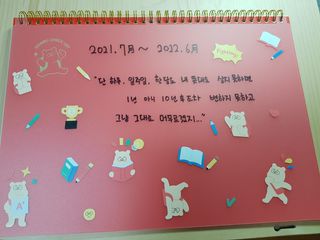 2021.7月 ~ 2022.6月
Fighting!
"단 하루, 일주일, 한 달도 내 뜻대로 살지 못하면,
1년 아니 10년 후조차 변하지 못하고
그냥 그대로 머무르겠지..."
A+